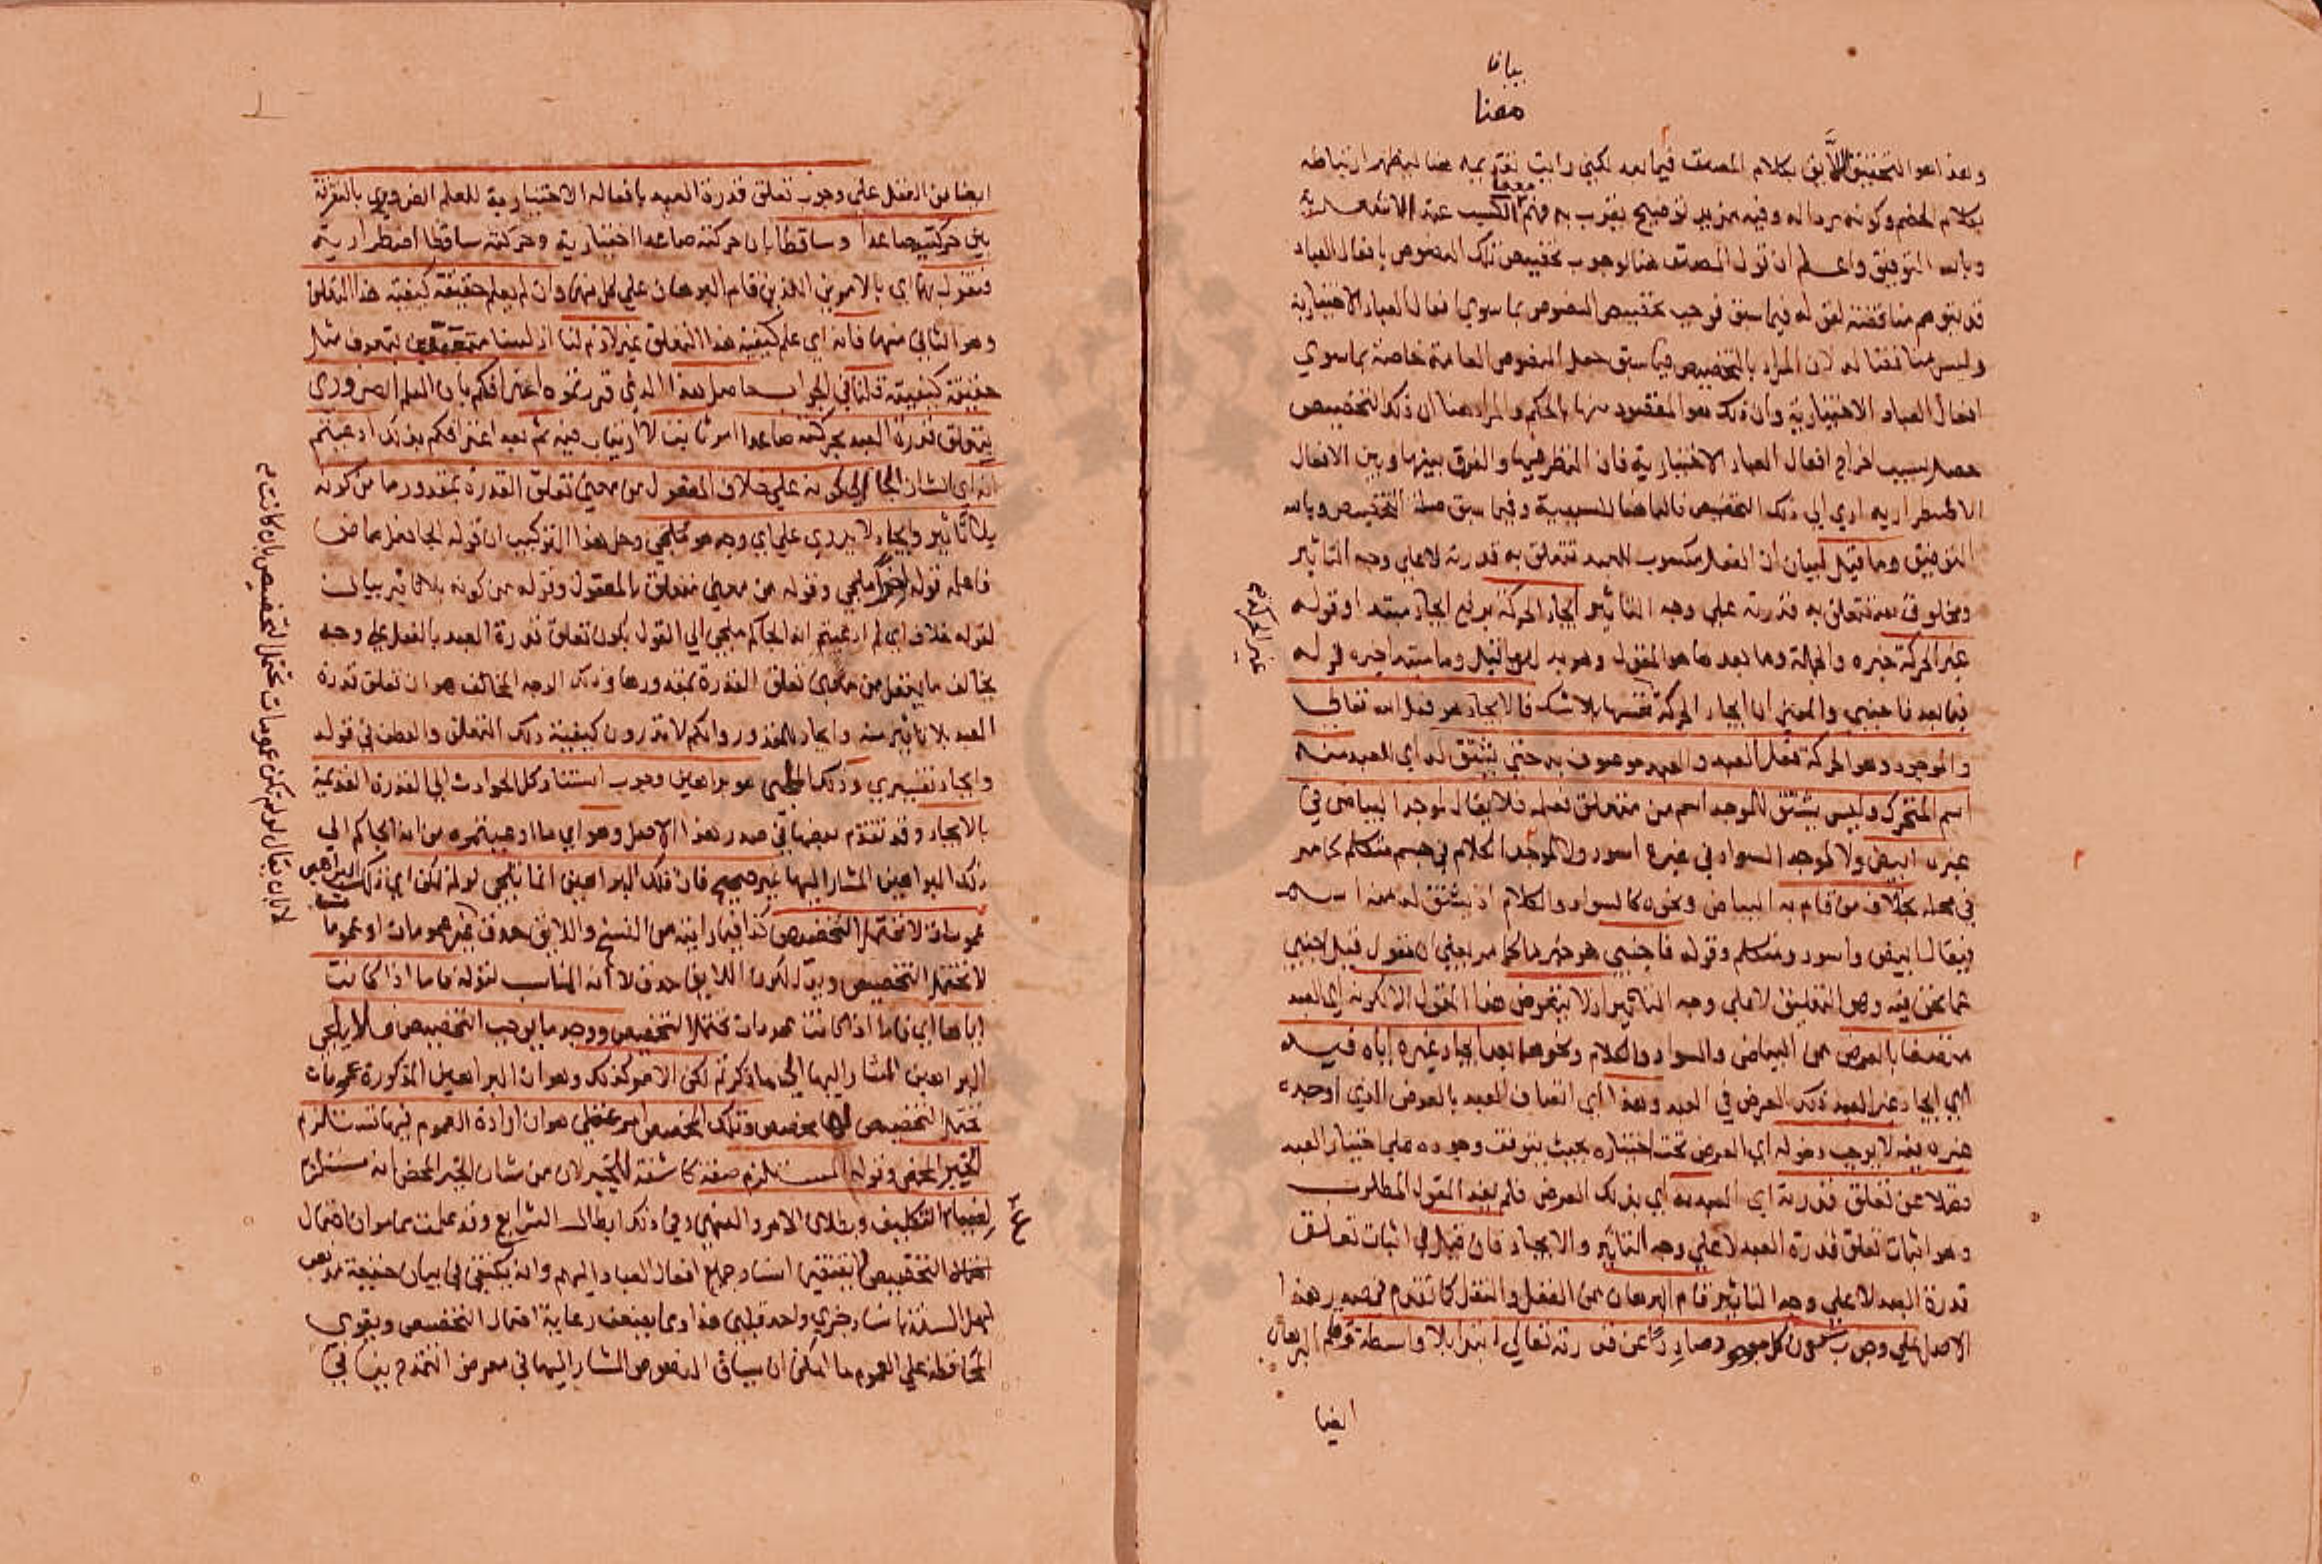 بيان
معنا
وهذا هو التحقيق اللائق بكلام المصنف فيما بعد لكني رايت تقديمه هنا ليظهر ارتباطه
بكلام الخصم وكونه مردا له وفيه مزيد توضيح يقرب به فهم معنى الكسب عند الاشعرية
وبالله التوفيق واعلم ان قول المصنف هنا لوجوب تخصيص تلك النصوص بافعال العباد
قد يتوهم مناقضته لقوله فيما سبق فوجب تخصيص النصوص بما سوي افعال العباد الاختيارية
وليس مناقضا له لان المراد بالتخصيص فيما سبق جعل النصوص العامة خاصة بما سوي
افعال العباد الاختيارية وان ذلك هو المقصود منها بالحكم والمراد هنا ان ذلك التخصيص
حصل بسبب اخراج افعال العباد الاختيارية فان النظر فيها والفرق بينها وبين الافعال
الاضطرارية ادي الي ذلك التخصيص فالباء هنا للسببية وفيما سبق صلة التخصيص وبالله
التوفيق وما قيل لبيان ان الفعل مكسوب للعبد تتعلق به قدرته لا علي وجه التاثير
ومخلوق لله تتعلق به قدرته علي وجه التاثير ايجاد الحركة برفع ايجاد مبتدا وقوله
غير الحركة خبره والجملة وما بعدها هو المقول وهو به لهو القيل وما مبتدا خبره قوله
فيما بعد فاجنبي والمعني ان ايجاد الحركة نفسها بلا شك فالايجاد هو فعل الله تعالي
والموجود وهو الحركة فعل العبد والعبد موصوف به حتي يشتق له اي العبد منه
اسم المتحرك وليس يشتق للموجد اسم من متعلق فعله فلا يقال لموجد البياض في
غيره ابيض ولا لموجد السواد في غيره اسود ولا لموجد الكلام في جسم متكلم كما مر
في محله بخلاف من قام به البياض ونحوه كالسواد والكلام اذ يشتق له منه اسم
فيقال ابيض واسود ومتكلم وقوله فاجنبي هو خبر ما كما مر يعني ان مقول قيل اجنبي
عما نحن فيه وهو التعليق لا علي وجه التاثير اذ لا يتعرض هذا المقول الا لكونه اي العبد
متصفا بالعرض من البياض والسواد والكلام ونحوهما بعد ايجاد غيره اياه فيه
اي ايجاد غير العبد ذلك العرض في العبد وهذا اي اتصاف العبد بالعرض الذي اوجده
غيره فيه لا يوجب دخوله اي العرض تحت اختياره بحيث يتوقف وجوده علي اختيار العبد
فضلا عن تعلق قدرته اي العبد به اي بذلك العرض فلم يفد المقول المطلوب
وهو اثبات تعلق قدرة العبد لا علي وجه التاثير والايجاد فان قيل في اثبات تعلق
قدرة العبد لا علي وجه التاثير قام البرهان من العقل والنقل كما تقدم في صدر هذا
الاصل علي وجوب كون كل موجود صادرا عن قدرته تعالي ابتدا بلا واسطة وقام البرهان
ايضا
غير الحركة
ايضا من العقل علي وجوب تعلق قدرة العبد بافعاله الاختيارية للعلم الضروري بالتفرقة
بين حركتيه صاعدا وساقطا بان حركته صاعدا اختيارية وحركته ساقطا اضطرارية
فنقول بهما اي بالامرين اللذين قام البرهان علي كل منهما وان لم يعلم حقيقة كيفية هذا التعلق
وهو الثاني منهما فانه اي علم كيفية هذا التعلق غير لازم لنا اذ لسنا متعبدين بتعرف مثل
حقيقة كيفيته قلنا في الجواب حاصل هذا الذي قررتموه اعترافكم بان العلم الضروري
يتعلق قدرة العبد بحركته صاعدا امر ثابت لا ارتياب فيه ثم بعد اعترافكم بذلك ادعيتم
انه اي الشان الجا الي كونه علي خلاف المعقول من معني تعلق القدرة بمقدورها من كونه
بلا تاثير وايجاد لا يدري علي اي وجه هو ملجي وحل هذا التركيب ان قوله الجا فعل ماض
فاعله قوله ملجي وقوله من معني متعلق بالمعقول وقوله من كونه بلا تاثير بيان
لقوله خلاف اي ثم ادعيتم انه الجاكم ملجي الي القول بكون تعلق قدرة العبد بالفعل علي وجه
يخالف ما يعقل من معني تعلق القدرة بمقدورها وذلك الوجه المخالف هو ان تعلق قدرة
العبد بلا تاثير منه وايجاد للمقدور وانكم لا تدرون كيفية ذلك التعلق والعطف في قوله
وايجاد تفسيري وذلك الملجي هو براهين وجوب استناد كل الحوادث الي القدرة القديمة
بالايجاد وقد تقدم بعضها في صدر هذا الاصل وهو اي ما ادعيتموه من انه الجاكم الي
ذلك البراهين المشار اليها غير صحيح فان تلك البراهين انما تلجي لو لم تكن اي تلك البراهين
عمومات لا تحتمل التخصيص كذا فيما رايته من النسخ واللايق حذف غير عمومات او عموما
لا تحتمل التخصيص ويدل لكون اللايق حذف لا انه المناسب لقوله فاما اذا كانت
اياها اي فاما اذا كانت عمومات تحتمل التخصيص ووجد ما يوجب التخصيص فلا يلجي
البراهين المشار اليها الي ما ذكرتم لكن الامر كذلك وهو ان البراهين المذكورة عمومات
تحتمل التخصيص لها مخصص وتلك المخصص امر عقلي هو ان ارادة العموم فيها تستلزم
الجبر المحض وقوله المستلزم صفة كاشفة للجبر لان من شان الجبر المحض انه مستلزم
لضياع التكليف وبطلان الامر والنهي وفي ذلك ابطال الشرايع وقد علمت مما مر ان احتمال
التخصيص لا يقتضي اسناد جميع افعال العباد اليهم وانه يكتفي في بيان حقيقة مذهب
اهل السنة باسناد جزئي واحد قلبي هذا ومما يضعف رعاية احتمال التخصيص ويقوي
المحافظة علي العموم ما امكن ان سياق النصوص المشار اليها في معرض التمدح ينافي
لا بان يقال لو لم تكن عمومات تحتمل التخصيص بان كانت